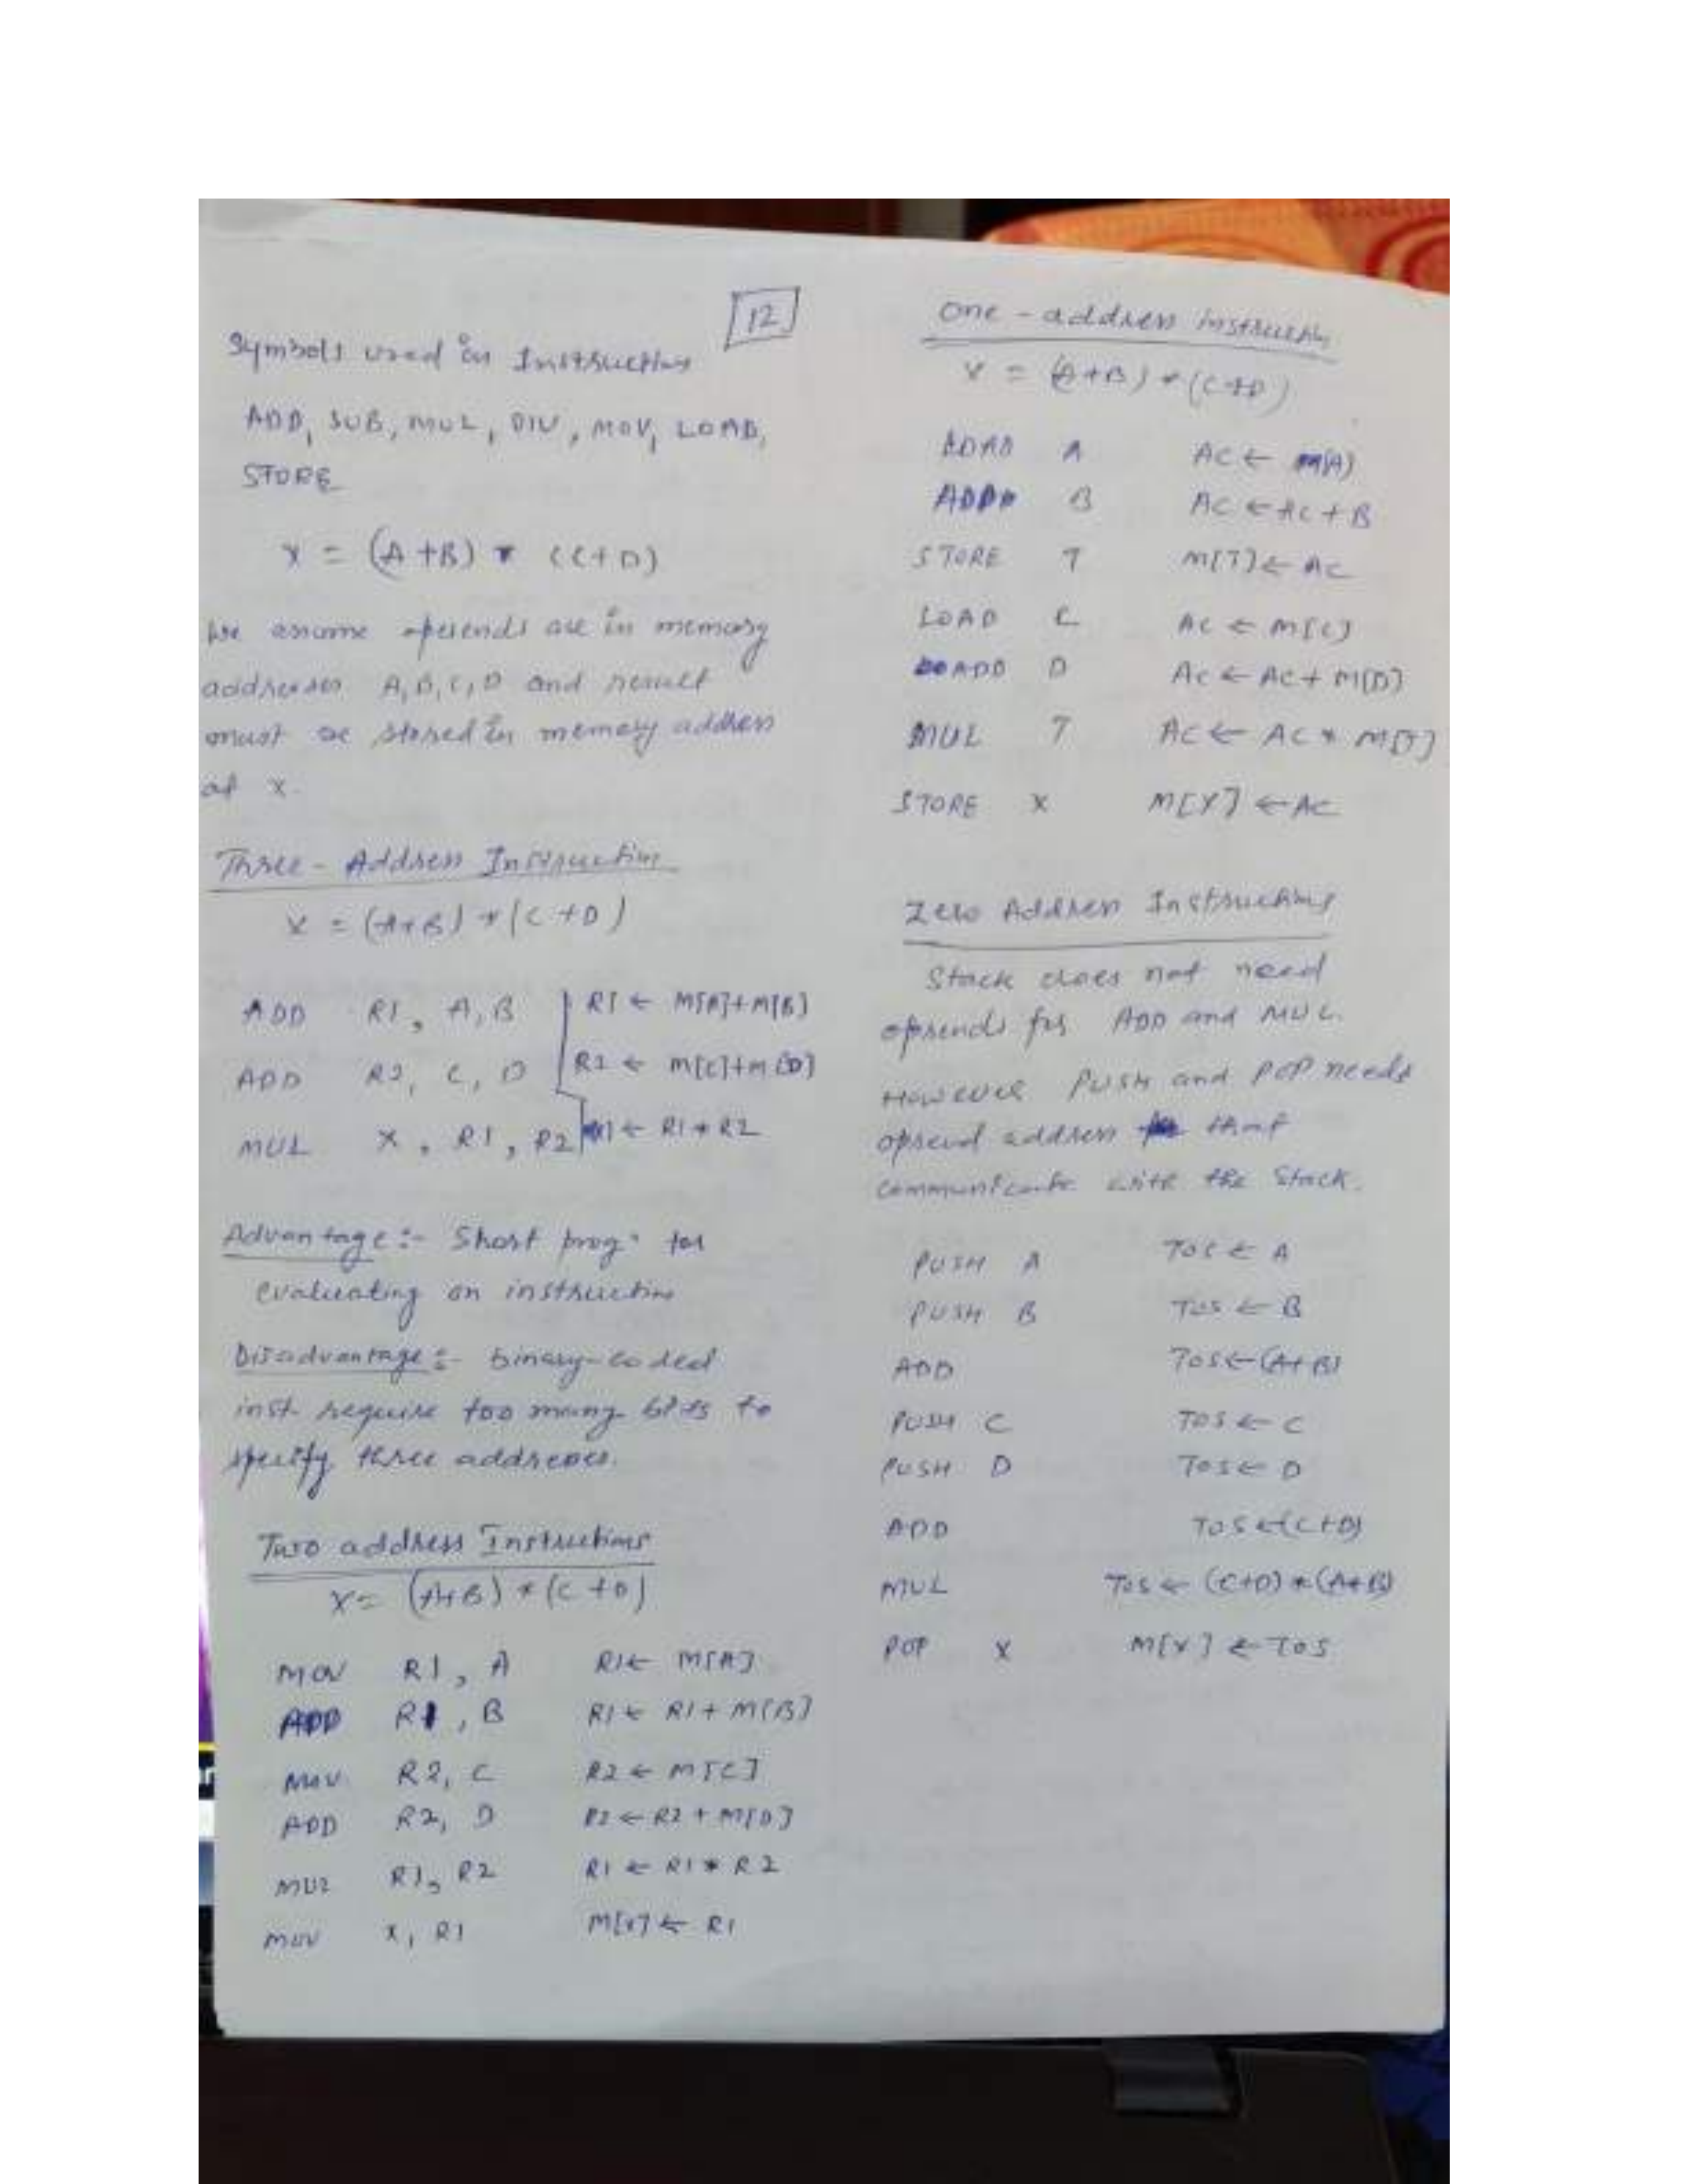 12
Symbols used in Instructions
ADD, SUB, MUL, DIV, MOV, LOAD,
STORE
X = (A+B) * (C+D)
We assume operends are in memory
addresses A, B, C, D and result
must be stored in memory address
at X.
Three - Address Instruction
X = (A+B) * (C+D)
ADD R1, A, B R1 ← M[A]+M[B]
ADD R2, C, D R2 ← M[C]+M[D]
MUL X, R1, R2 ← R1 * R2
Advantage :- Short prog. for
evaluating an instruction
Disadvantage :- binary-coded
inst. require too many bits to
specify three addresses.
Two address Instructions
X = (A+B) * (C+D)
MOV R1, A R1 ← M[A]
ADD R1, B R1 ← R1 + M[B]
MOV R2, C R2 ← M[C]
ADD R2, D R2 ← R2 + M[D]
MUL R1, R2 R1 ← R1 * R2
MOV X, R1 M[X] ← R1
One - address instruction
X = (A+B) * (C+D)
LOAD A AC ← M[A]
ADD B AC ← AC + B
STORE T M[T] ← AC
LOAD C AC ← M[C]
ADD D AC ← AC + M[D]
MUL T AC ← AC * M[T]
STORE X M[X] ← AC
Zero Address Instructions
Stack does not need
oprends for ADD and MUL.
However PUSH and POP needs
oprend address that
communicate with the Stack.
PUSH A TOS ← A
PUSH B TOS ← B
ADD TOS ← (A+B)
PUSH C TOS ← C
PUSH D TOS ← D
ADD TOS ← (C+D)
MUL TOS ← (C+D) * (A+B)
POP X M[X] ← TOS